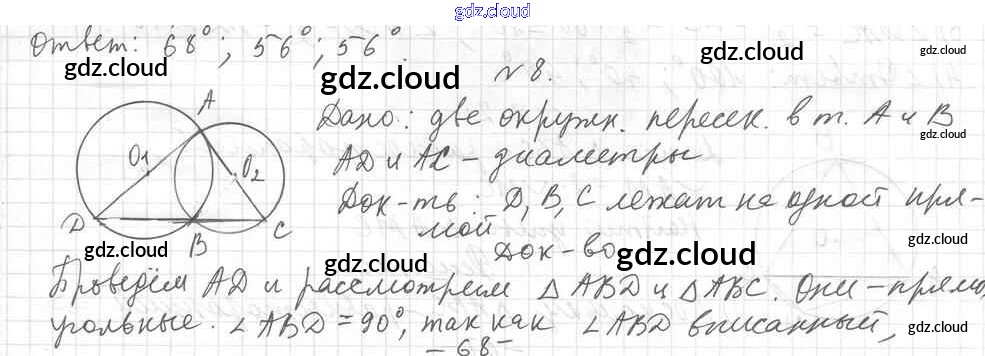 gdz.cloud
Ответ: 68°; 56°; 56°.
gdz.cloud
gdz.cloud
№8.
gdz.cloud
A
Дано: две окружн. пересек. в т. A и B
gdz.cloud
O1
O2
AD и AC - диаметры
gdz.cloud
gdz.cloud
Док-ть: D, B, C лежат на одной пря-
D
B
C
мой
gdz.cloud
gdz.cloud
Док-во
gdz.cloud
gdz.cloud
Проведём AD и рассмотрим △ABD и △ABC. Они - прямо
gdz.cloud
угольные. ∠ABD = 90°, так как ∠ABD вписанный,
gdz.cloud
- 68 -